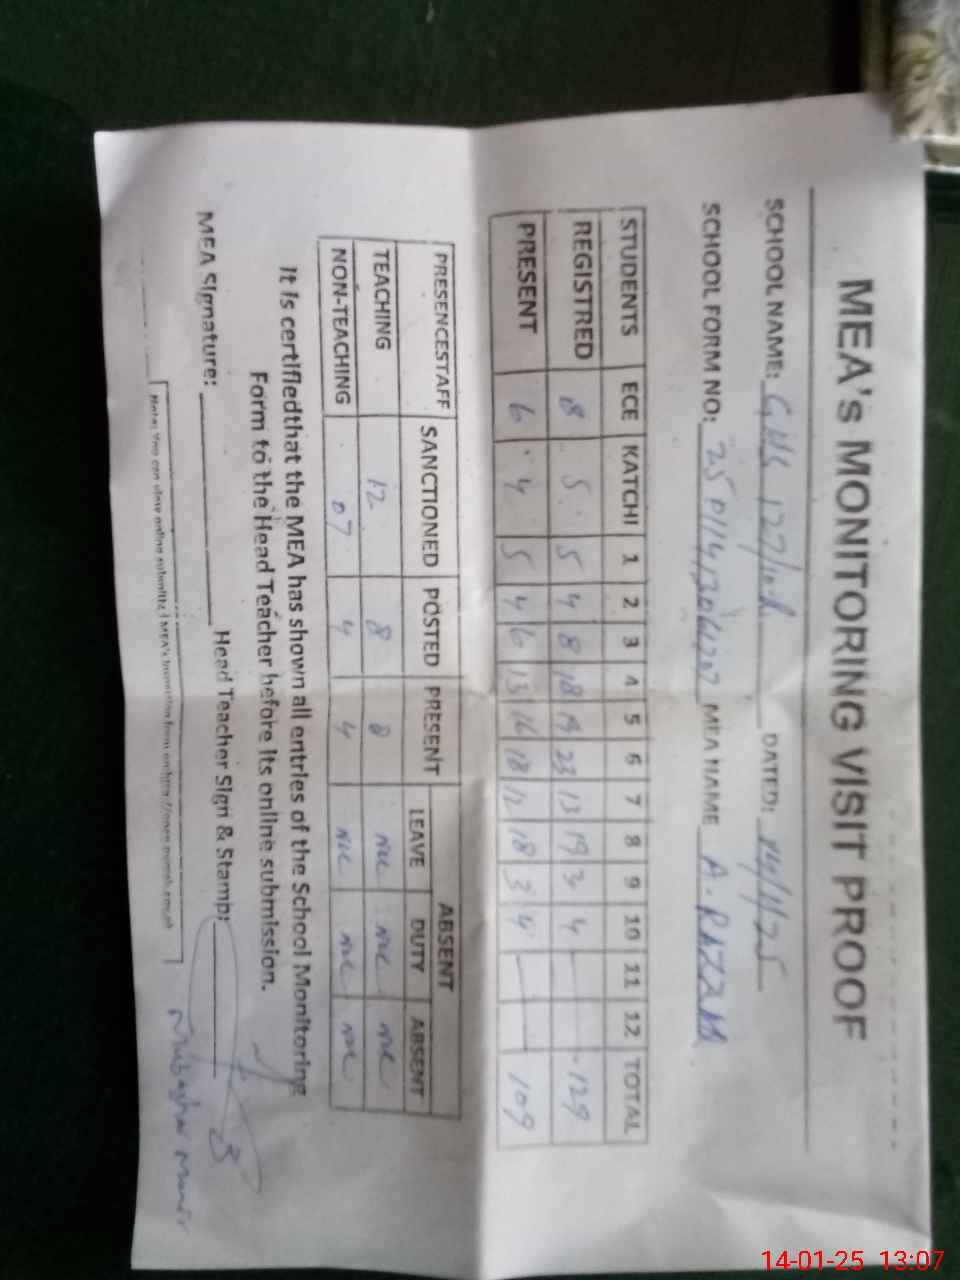 MEA's MONITORING VISIT PROOF
SCHOOL NAME: GHS 127/10.R DATED: 14/1/25
SCHOOL FORM NO: MEA NAME A. RAZZAQ
STUDENTS ECE KATCHI 1 2 3 4 5 6 7 8 9 10 11 12 TOTAL
REGISTRED 8 5 5 4 8 18 19 23 13 19 3 4 — — 129
PRESENT 6 4 5 4 6 13 16 18 12 18 3 4 — — 109
PRESENCESTAFF SANCTIONED POSTED PRESENT ABSENT
LEAVE DUTY ABSENT
TEACHING 12 8 8 NIL NIL NIL
NON-TEACHING 07 4 4 NIL NIL NIL
It is certifiedthat the MEA has shown all entries of the School Monitoring
Form to the Head Teacher before its online submission.
MEA Signature: Head Teacher Sign & Stamp:
Note: You can view online submitted MEA's
14-01-25 13:07